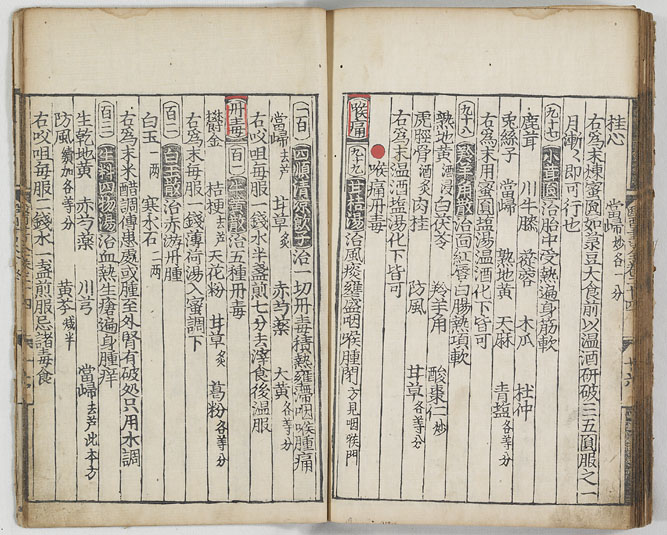 桂心　當歸炒各一分
右爲末煉蜜圓如菉豆大食前以温酒研破三五圓服之一
月漸々即可行也
九十七 小茸圓 治胎中受熱遍身筋軟
鹿茸　川牛膝　蓯蓉　木瓜　杜仲
兎絲子　當歸　熟地黄　天麻　青塩各等分
右爲末用蜜圓塩湯温酒化下皆可
九十八 羚羊角散 治面紅唇白腸熱項軟
熟地黄酒浸　白茯苓　羚羊角　酸棗仁炒
虎脛骨酒炙　肉桂　防風　甘草各等分
右爲末温酒塩湯化下皆可
喉痛丹毒
喉痛 九十九 甘桔湯 治風痰壅盛咽喉腫閉方見咽喉門
一百 四順清凉飲子 治一切丹毒積熱壅滯咽喉腫痛
當歸去芦　甘草炙　赤芍薬　大黄各等分
右㕮咀毎服一銭水半盞煎七分去滓食後温服
丹毒 百一 治五種丹毒
欝金　桔梗去芦　天花粉　甘草炙　葛粉各等分
右爲末毎服一銭薄荷湯入蜜調下
百二 白玉散 治赤游丹腫
白玉一两　寒水石二两
右爲末米醋調傳患處或腫至外腎有破処只用水調
百三 生料四物湯 治血熱生瘡遍身腫痒
生乾地黄　赤芍薬　川芎　當歸去芦此本方
防風續加各等分　黄芩减半
右㕮咀毎服二銭水一盞煎服忌諸毒食